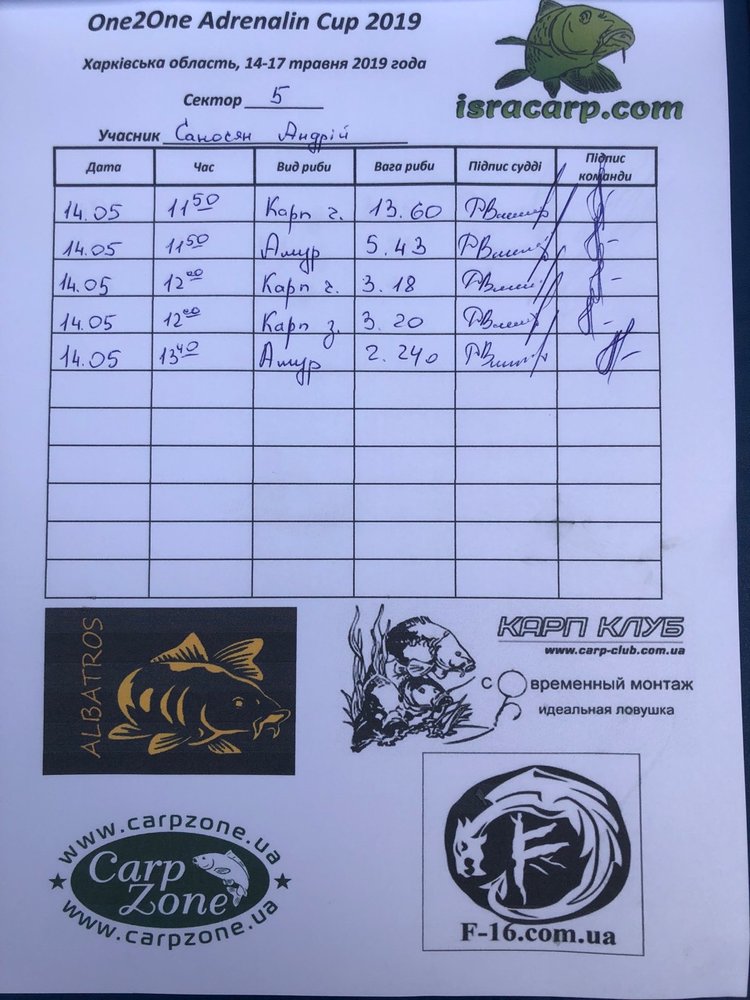 One2One Adrenalin Cup 2019
Харківська область, 14-17 травня 2019 года
isracarp.com
Сектор 5
Учасник Саносян Андрій
Дата Час Вид риби Вага риби Підпис судді Підпис команди
14.05 11 50 Карп г. 13.60
14.05 11 50 Амур 5.43
14.05 12 00 Карп г. 3.18
14.05 12 00 Карп з. 3.20
14.05 13 40 Амур 2.240
ALBATROS
КАРП КЛУБ
www.carp-club.com.ua
с временный монтаж
идеальная ловушка
www.carpzone.ua
Carp
Zone
www.carpzone.ua
F-16.com.ua